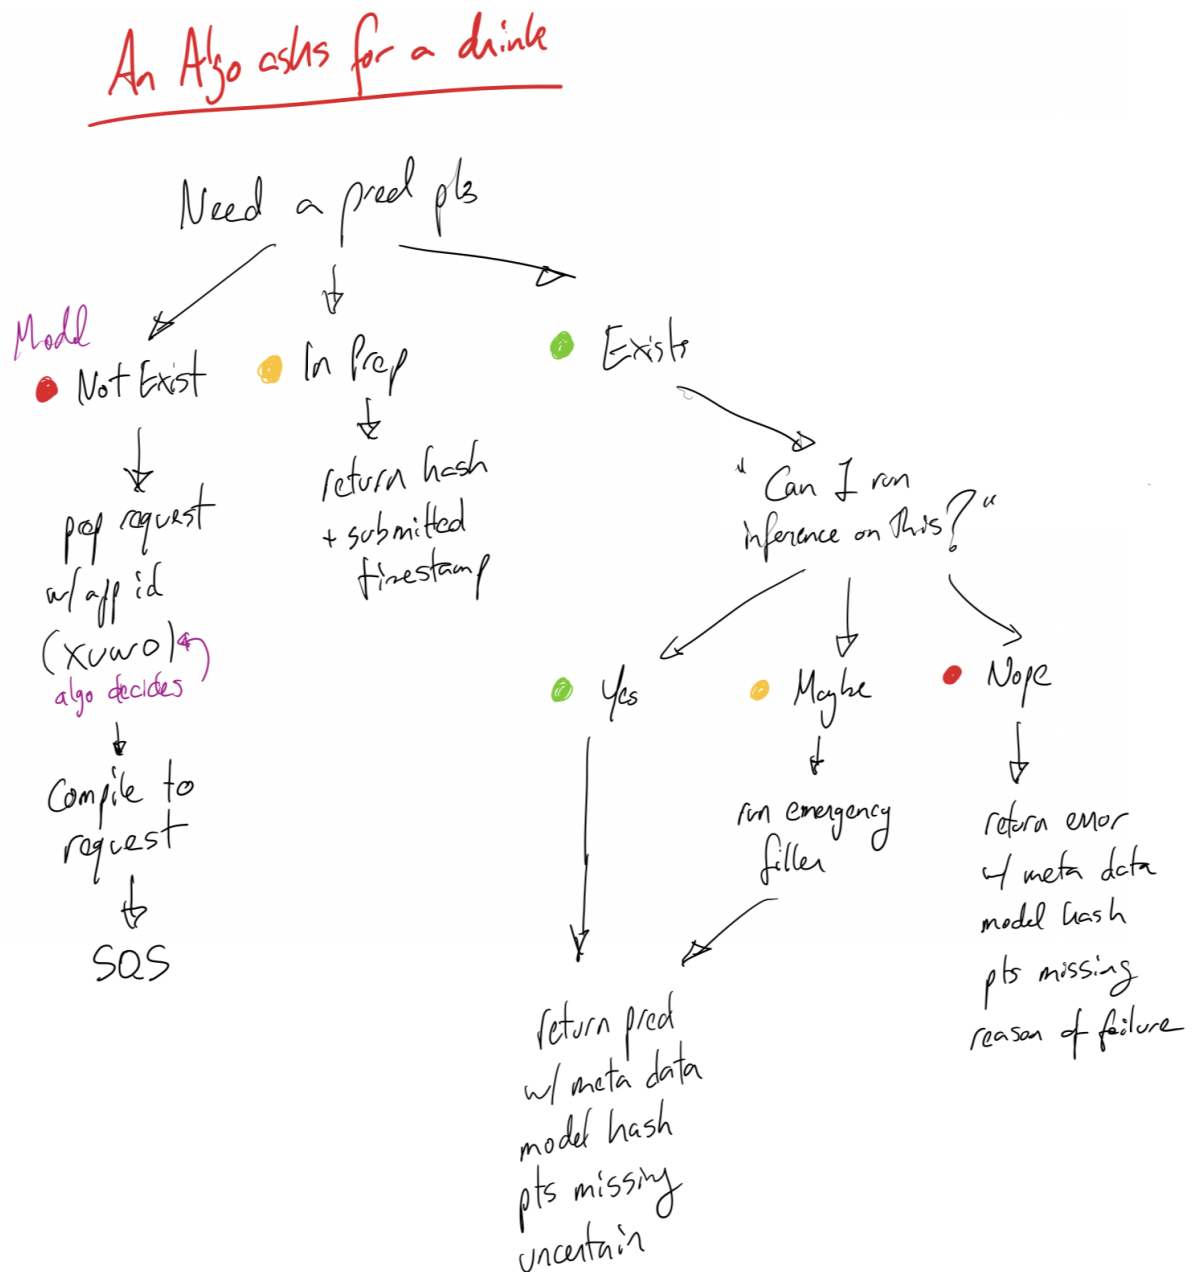 An Algo asks for a drink
Need a pred pls
Model
Not Exist
prep request
w/ app id
(xuwo)
algo decides
Compile to
request
SQS
In Prep
return hash
+ submitted
timestamp
Exists
"Can I run
inference on this?"
Yes
Maybe
run emergency
filler
return pred
w/ meta data
model hash
pts missing
uncertain
Nope
return error
w/ meta data
model hash
pts missing
reason of failure